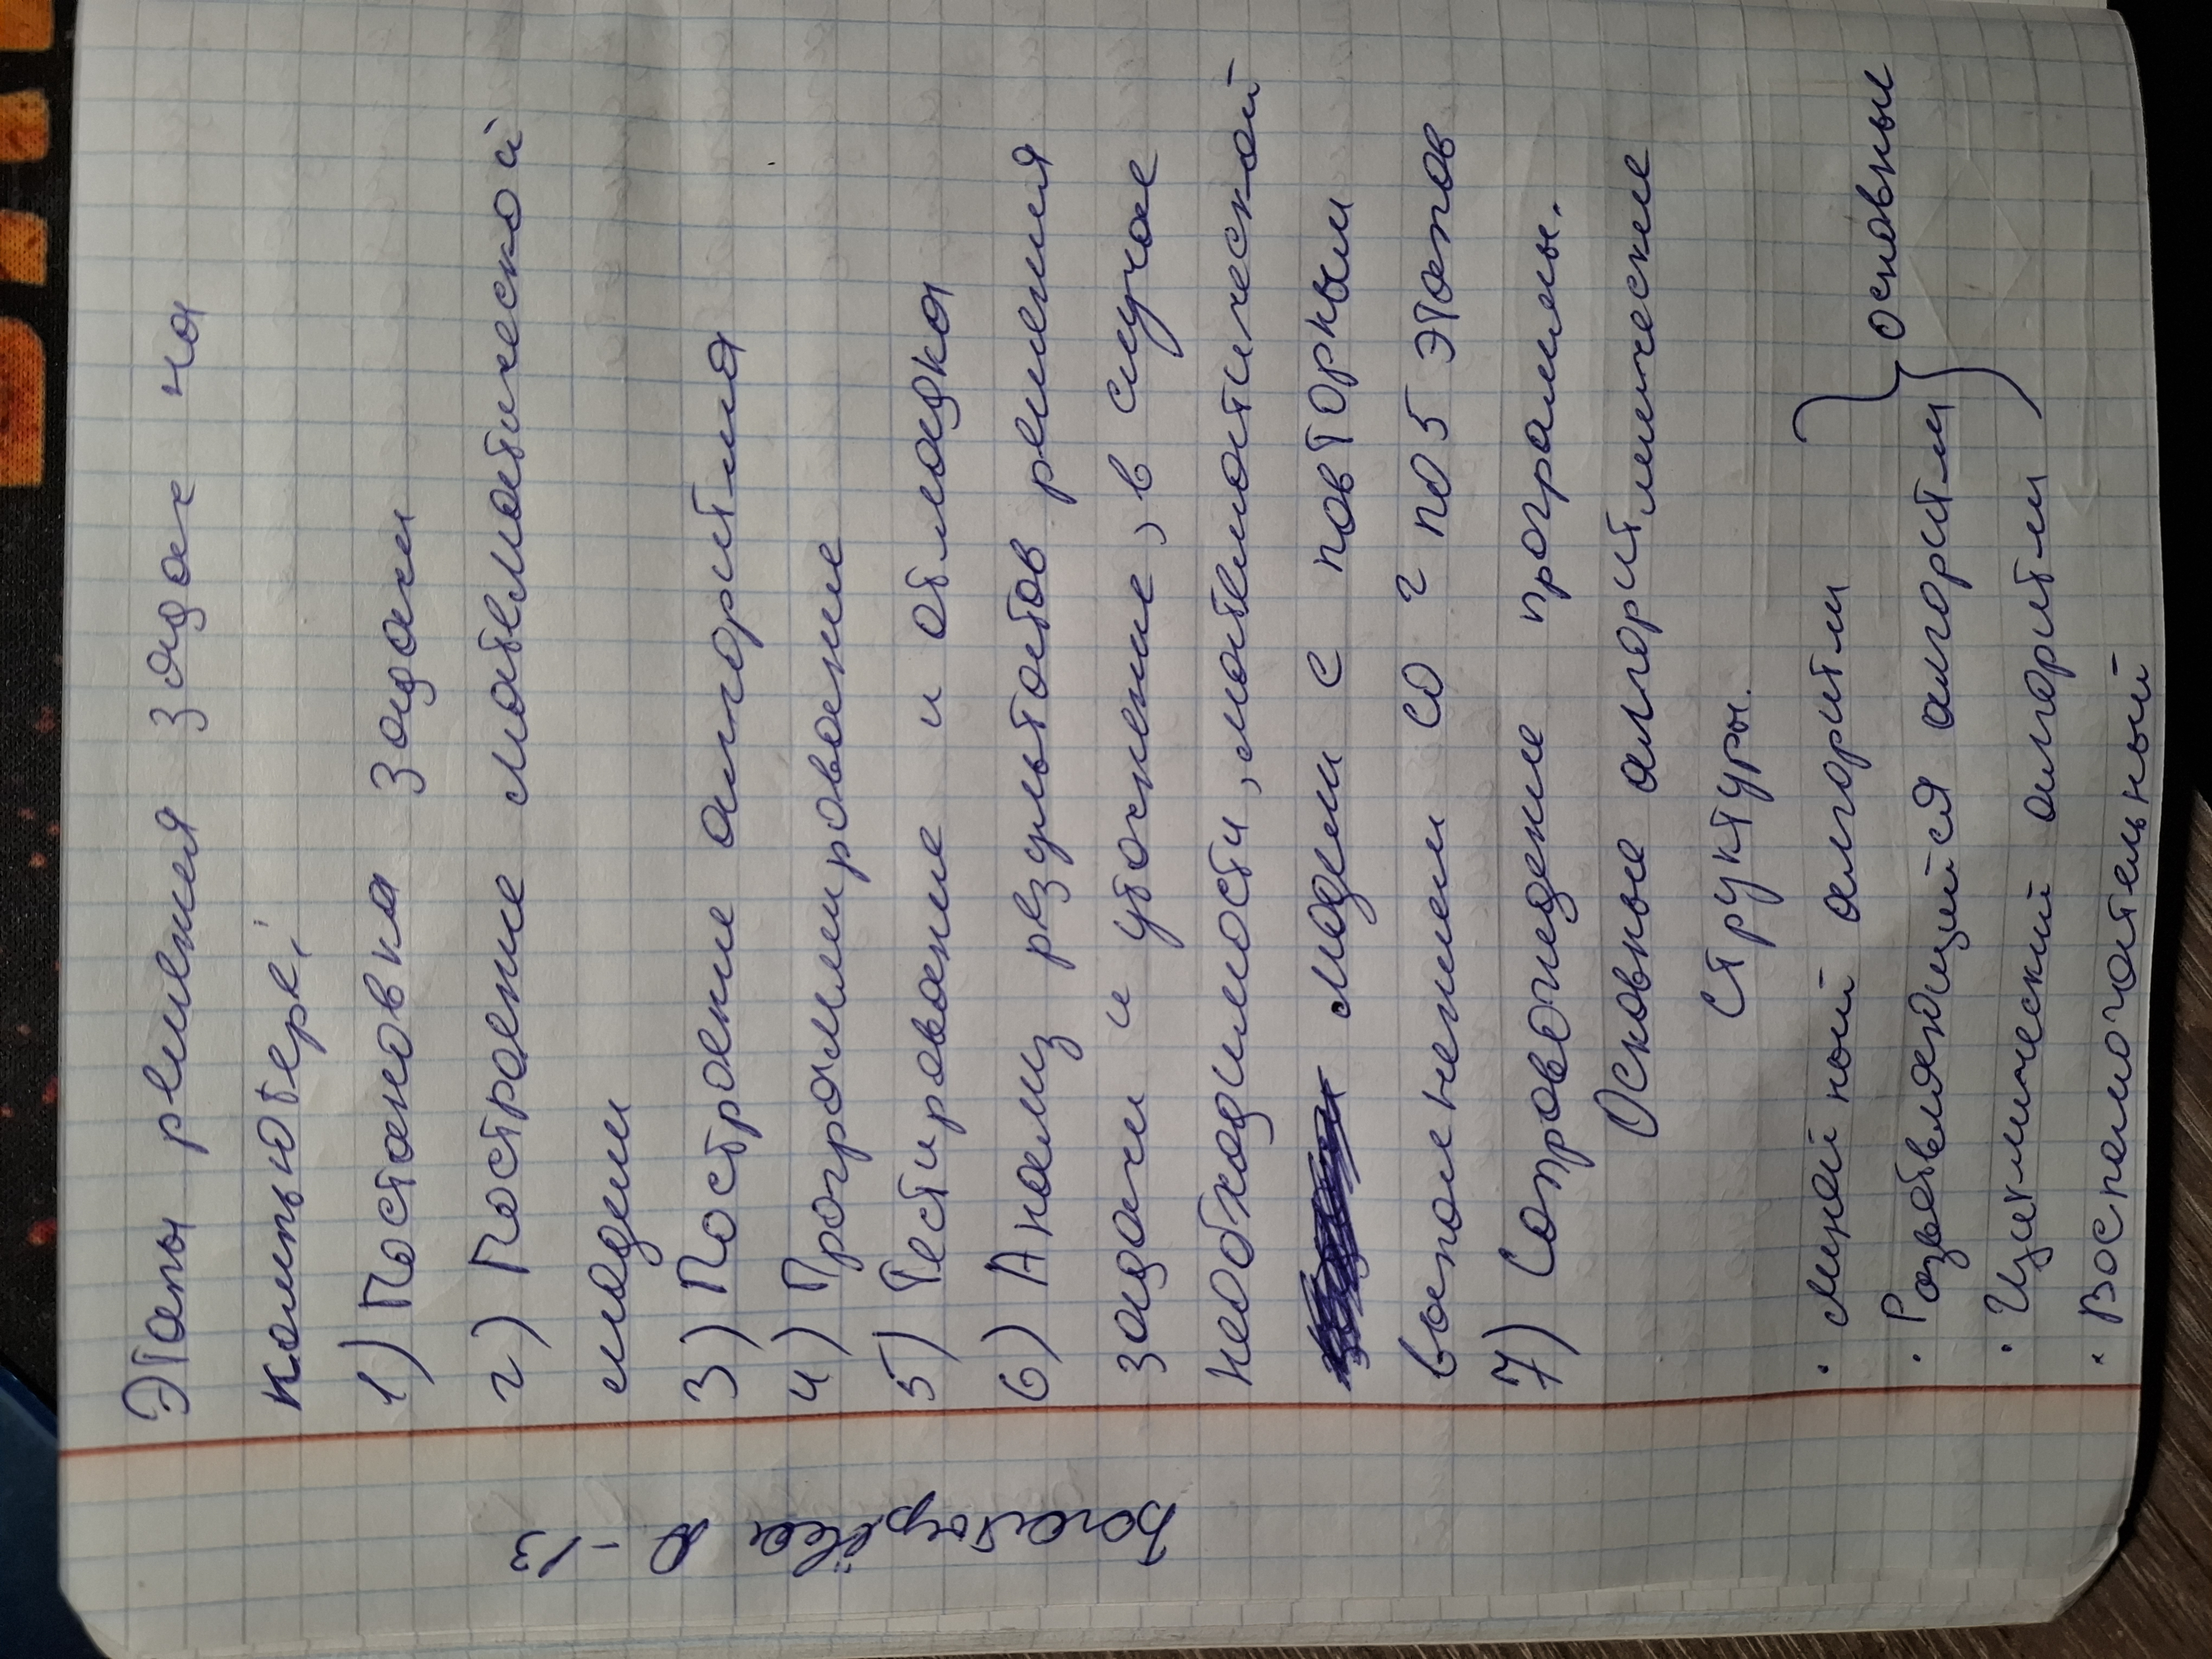 Этапы решения задач на
компьютере:
1) Постановка задачи
2) Построение математической
модели
3) Построение алгоритма
4) Программирование
5) Тестирование и отладка
6) Анализ результатов решения
задачи и уточнение, в случае
необходимости, математической
модели с повторным
выполнением со 2 по 5 этапов
7) Сопровождение программы.
Основные алгоритмические
структуры.
· Линейный алгоритм
· Разветвляющийся алгоритм
· Циклический алгоритм
основные
· Вспомогательный